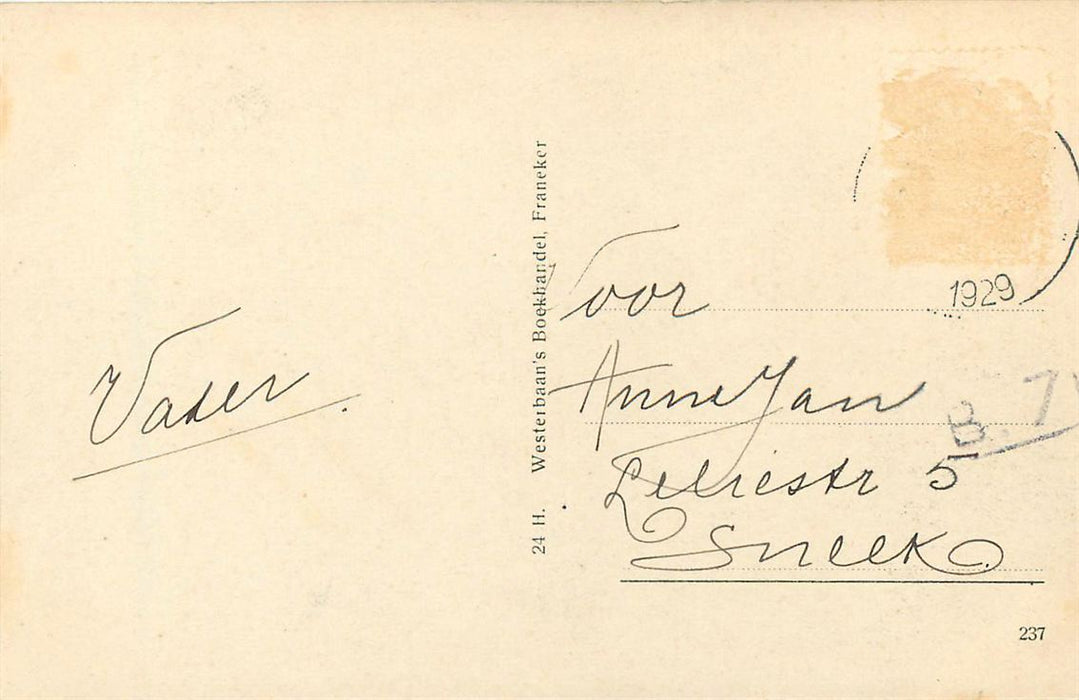 Vader.
24 H. Westerbaan's Boekhandel, Franeker
1929
Voor
Anne Jan
Leliestr 5
Sneek
B. 7
237